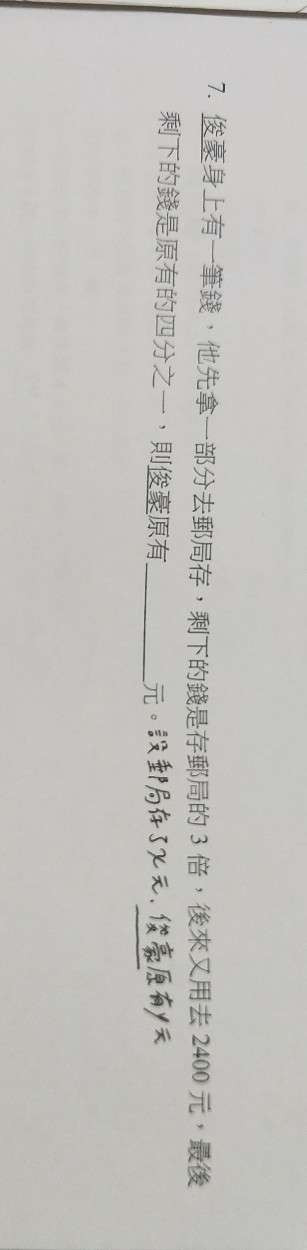 7. 俊豪身上有一筆錢，他先拿一部分去郵局存，剩下的錢是存郵局的 3 倍，後來又用去 2400 元，最後
剩下的錢是原有的四分之一，則俊豪原有＿＿＿＿元。設郵局存 x 元，俊豪原有 y 元